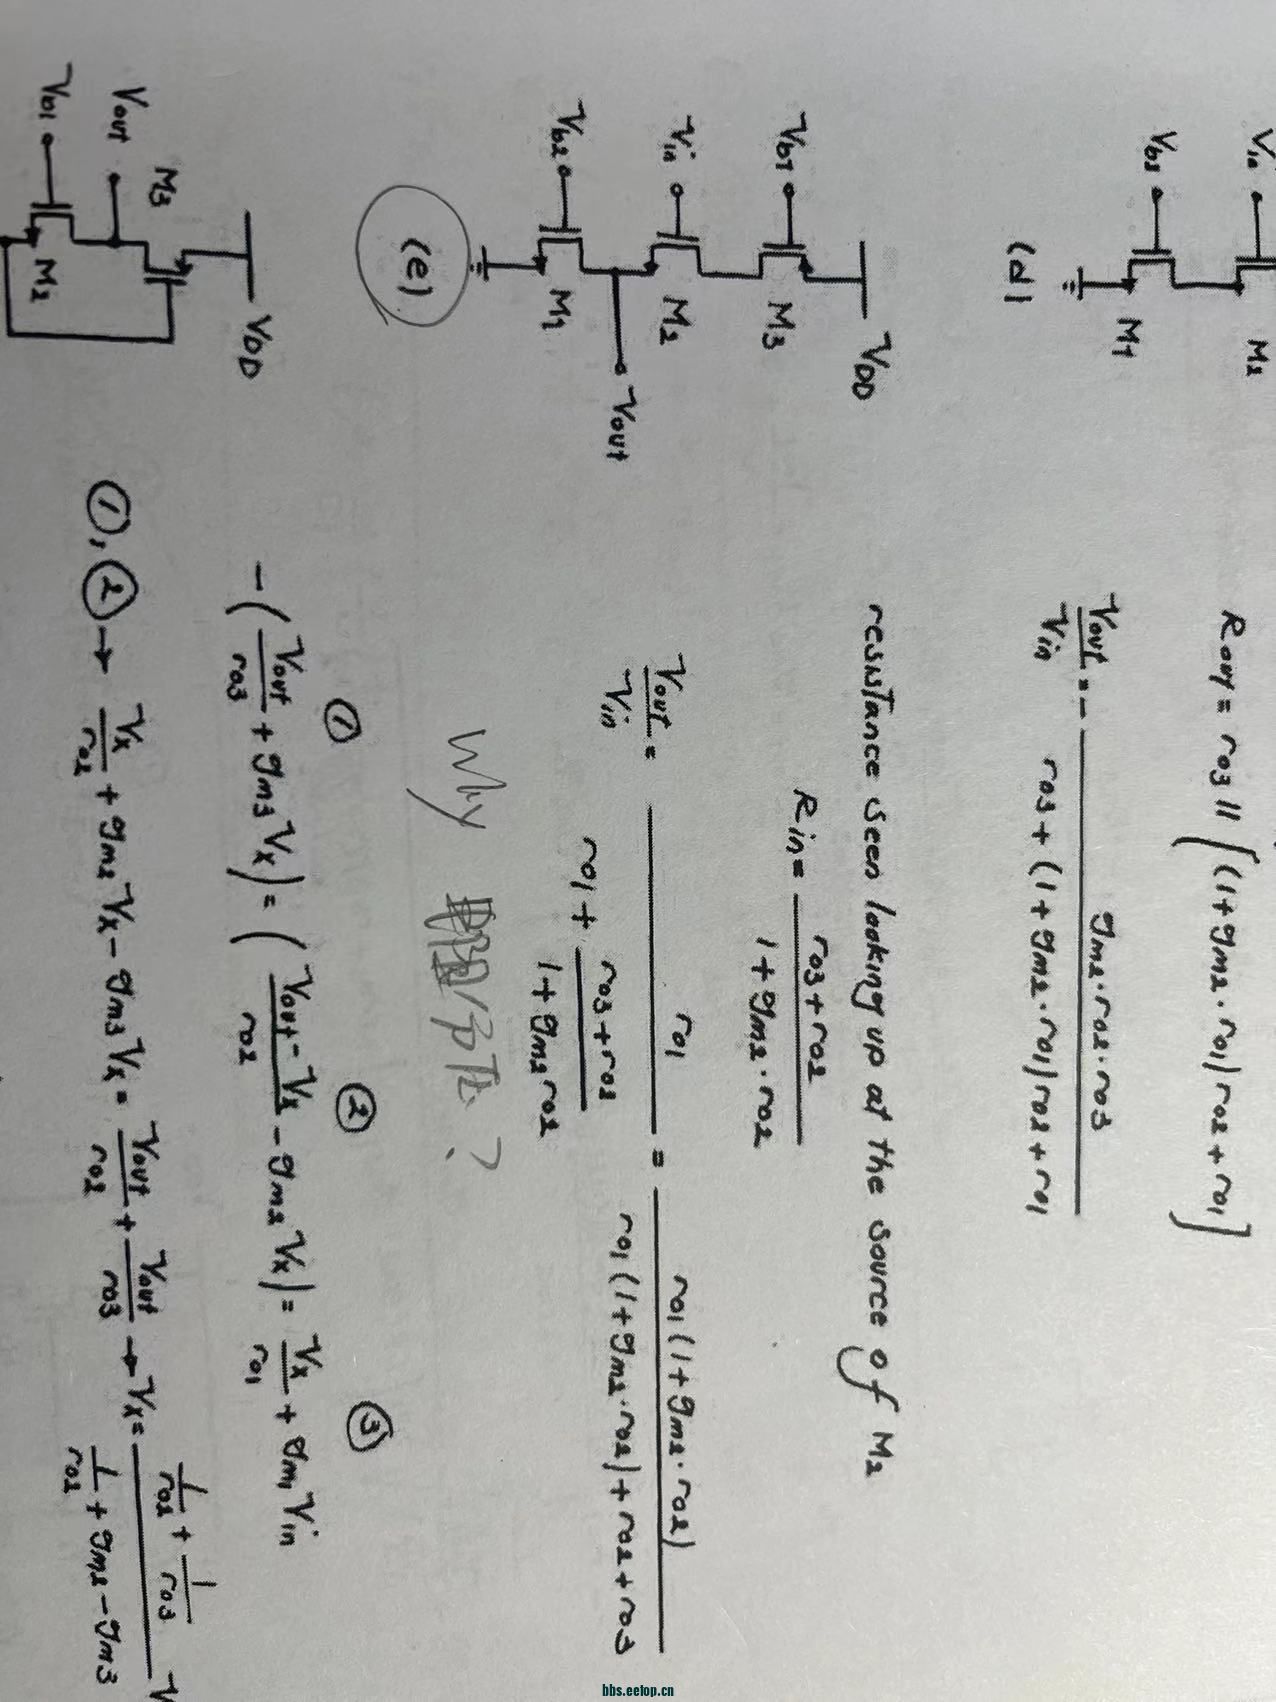 Vin
M2
Vb2
M1
(d)
Rout = ro3 || [(1+gm2·ro1)ro2+ro1]
Vout/Vin = - gm2·ro2·ro3 / ro3+(1+gm2·ro1)ro2+ro1
VDD
Vb1
M3
Vin
M2
Vout
Vb2
M1
(e)
resistance seen looking up at the source of M2
Rin = ro3+ro2 / 1+gm2·ro2
Vout/Vin = ro1 / ro1 + ro3+ro2 / 1+gm2ro2 = ro1(1+gm2·ro2) / ro1(1+gm2·ro2)+ro2+ro3
Why 分压?
VDD
M3
Vout
Vb1
M2
① ② ③
-(Vout/ro3 + gm3Vx) = (Vout-Vx/ro2 - gm2Vx) = Vx/ro1 + gm1Vin
①,② → Vx/ro2 + gm2Vx - gm3Vx = Vout/ro2 + Vout/ro3 → Vx = 1/ro2 + 1/ro3 / 1/ro2 + gm2 - gm3 V
bbs.eetop.cn